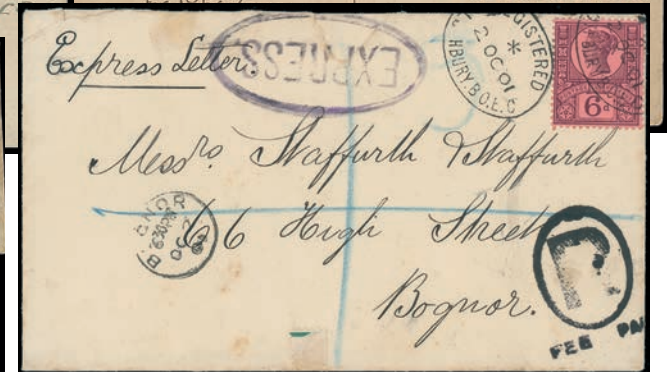 Express Letter.
EXPRESS
REGISTERED
2 OC 01
HBURY.B.O.E.C
6D
Messrs Staffurth & Staffurth
66 High Street
Bognor.
BOGNOR
6 30 PM
OC 2
L
FEE PA